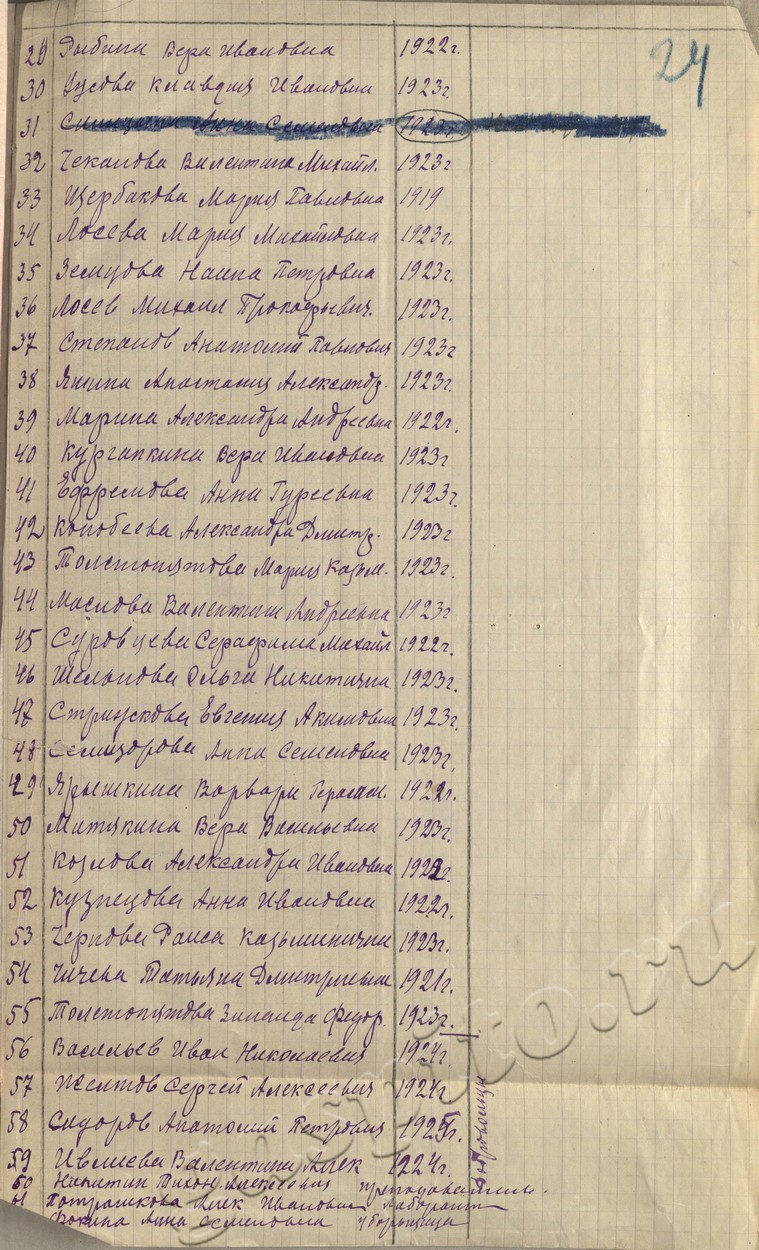 24
29 Рыбина Вера Ивановна 1922г.
30 Усова Клавдия Ивановна 1923г.
31 Анна Семеновна 1923г.
32 Чеканова Валентина Михайл. 1923г
33 Щербакова Мария Павловна 1919
34 Лосева Мария Михайловна 1923г.
35 Земцова Наина Петровна 1923г.
36 Лосев Михаил Прокофьевич. 1923г.
37 Степанов Анатолий Павлович 1923г
38 Янина Анастасия Александр. 1923г.
39 Марина Александра Андреевна 1922г.
40 Курганкина Вера Ивановна 1923г
41 Ефремова Анна Гуреевна 1923г.
42 Александра Дмитр. 1923г
43 Толстопятова Мария Казьм. 1923г.
44 Маслова Валентина Андреевна 1923г
45 Суровцева Серафима Михайл 1922г.
46 Ольга Никитична 1923г.
47 Стрункова Евгения Акимовна 1923г.
48 Анна Семеновна 1923г.
49 Ярышкина Варвара Герасим. 1922г.
50 Митякина Вера Васильевна 1923г.
51 Козлова Александра Ивановна 1922г.
52 Кузнецова Анна Ивановна 1922г.
53 Чернова Раиса Казьминична 1923г.
54 Чичева Татьяна Дмитриевна 1921г.
55 Толстопятова Зинаида Федор. 1923г.
56 Васильев Иван Николаевич 1924г.
57 Желтов Сергей Алексеевич 1924г
58 Сидоров Анатолий Петрович 1925г.
59 Ивлиева Валентина Алек 1924г.
добровольцы
60 Никитин Тихон Алексеевич преподаватель.
61 Алек Иванович лаборант
Фокина Анна Семеновна уборщица